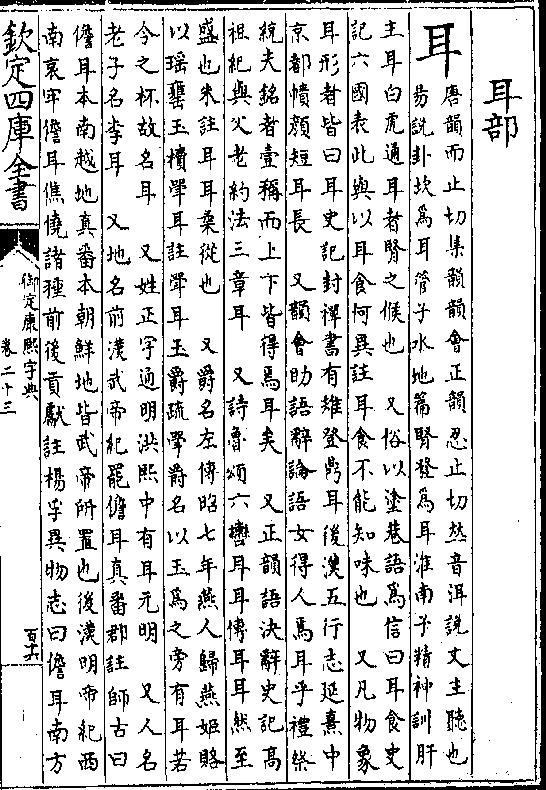 耳部
耳
唐韻而止切集韻韻會正韻忍止切𠀤音洱說文主聽也
易說卦坎爲耳管子水地篇腎發爲耳淮南子精神訓肝
主耳白虎通耳者腎之候也 又俗以塗巷語爲信曰耳食史
記六國表此與以耳食何異註耳食不能知味也 又凡物象
耳形者皆曰耳史記封禪書有雉登鼎耳後漢五行志延熹中
京都幘顏短耳長 又韻會助語辭論語女得人焉耳乎禮祭
統夫銘者壹稱而上下皆得焉耳矣 又正韻語決辭史記高
祖紀與父老約法三章耳 又詩魯頌六轡耳耳傳耳耳然至
盛也朱註耳耳柔從也 又爵名左傳昭七年燕人歸燕姬賂
以瑤罋玉櫝斝耳註斝耳玉爵疏斝爵名以玉爲之旁有耳若
今之杯故名耳 又姓正字通明洪熙中有耳元明 又人名
老子名李耳 又地名前漢武帝紀罷儋耳真番郡註師古曰
儋耳本南越地真番本朝鮮地皆武帝所置也後漢明帝紀西
南哀牢儋耳僬僥諸種前後貢獻註楊孚異物志曰儋耳南方
欽定四庫全書
御定康熙字典
卷二十三